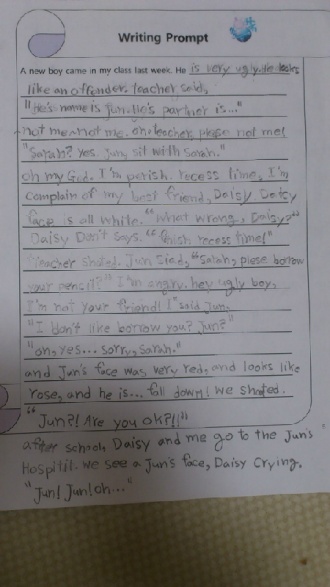 Writing Prompt
A new boy came in my class last week. He is very ugly. He looks
like an offender. teacher said,
"He's name is Jun. He's partner is..."
not me. not me. oh. teacher, please not me!
"Sarah? Yes. Jun, sit with Sarah."
oh my God. I'm perish. recess time, I'm
complain of my best friend, Daisy. Daisy
face is all white. "What wrong, Daisy?"
Daisy Don't says. "finish recess time!"
Teacher shated. Jun Sied, "Sarah, plese borrow
your pencil?" I'm angry. hey ugly boy,
I'm not your friend! I "said Jun,
"I don't like borrow you? Jun?"
"oh, yes... sorry, Sarah."
and Jun's face was very red, and looks like
rose, and he is... fall down! we shated.
"Jun?! Are you ok?!!"
after school, Daisy and me go to the Jun's
Hospitil. we see a Jun's face, Daisy Crying.
"Jun! Jun! oh..."